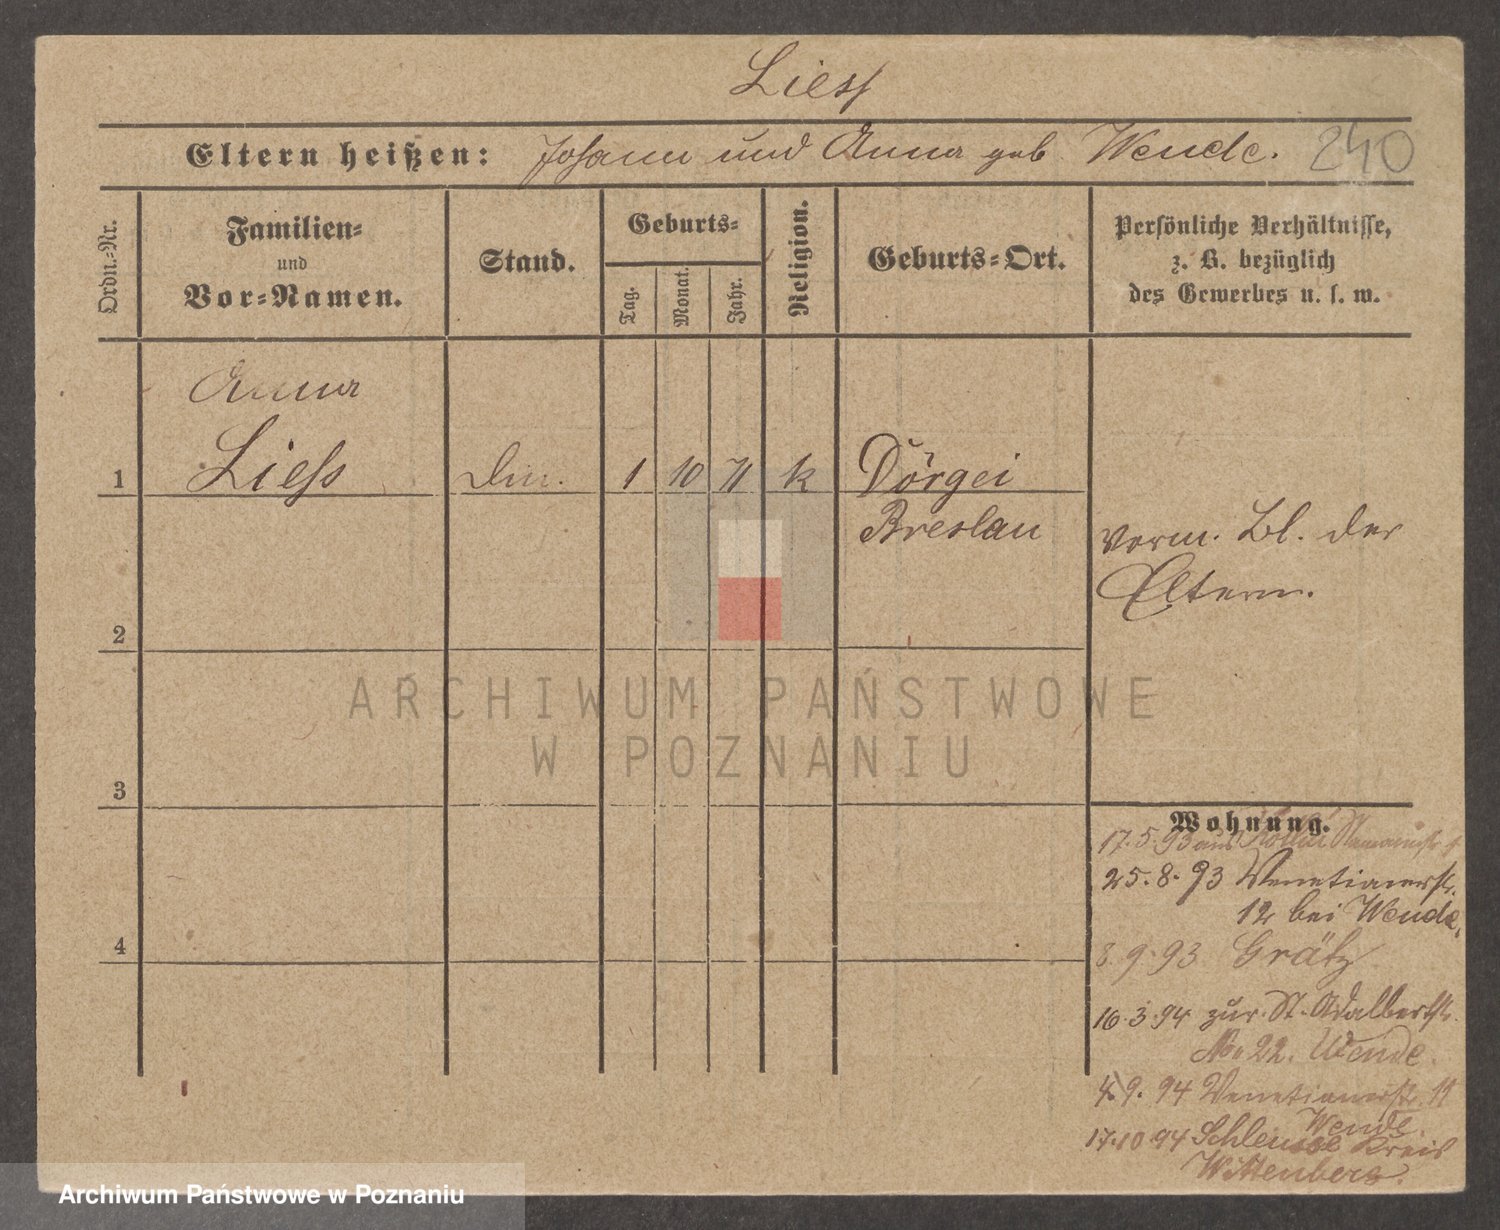 Liess
Eltern heißen: Johann und Anna geb Wende.
240
Ordn.-Nr.
Familien-
und
Vor-Namen.
Stand.
Geburts-
Tag.
Monat.
Jahr.
Religion.
Geburts-Ort.
Persönliche Verhältnisse,
z. B. bezüglich
des Gewerbes u. s. w.
Anna
1 Liess 1 10 71 k Dörgei
Breslau
vorm. Bl. der
Eltern.
2
3
4
ARCHIWUM PAŃSTWOWE
W POZNANIU
Wohnung.
17.5.93 aus
25.8.93 Venetianerstr.
12 bei Wende.
8.9.93 Grätz
16.3.94 zur. St. Adalbertstr.
No. 22. Wende.
4.9.94 Venetianerstr. 11
Wende.
17.10.94 Schleusse Kreis
Wittenberg.
Archiwum Państwowe w Poznaniu